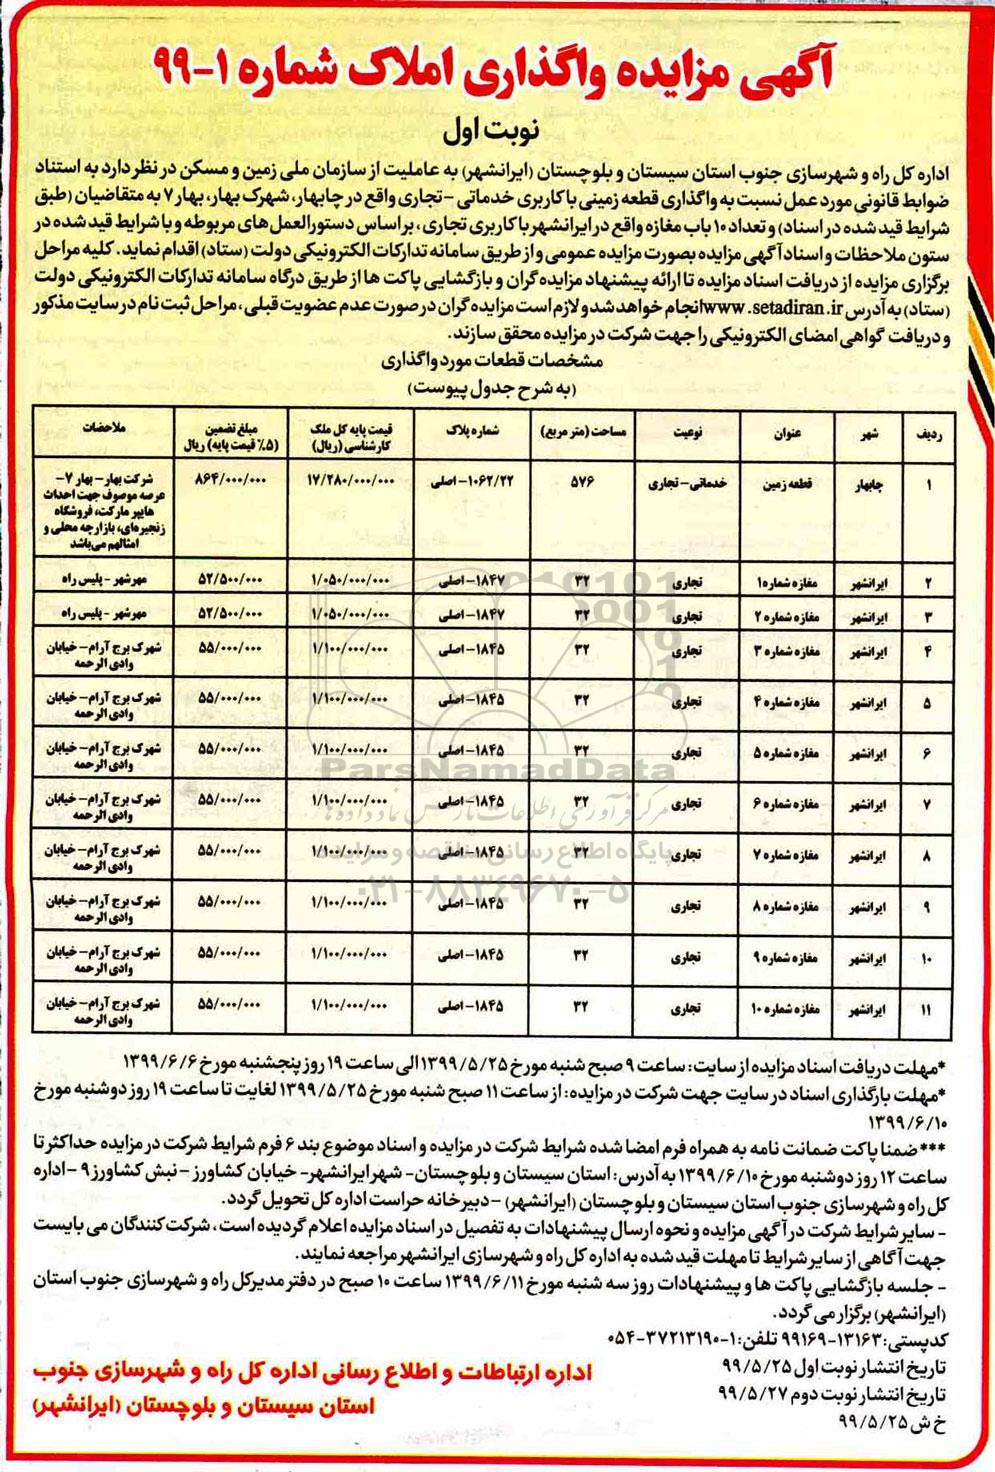 آگهی مزایده واگذاری املاک شماره ۱-۹۹
نوبت اول
اداره کل راه و شهرسازی جنوب استان سیستان و بلوچستان (ایرانشهر) به عاملیت از سازمان ملی زمین و مسکن در نظر دارد به استناد
ضوابط قانونی مورد عمل نسبت به واگذاری قطعه زمینی با کاربری خدماتی - تجاری واقع در چابهار، شهرک بهار، بهار ۷ به متقاضیان (طبق
شرایط قید شده در اسناد) و تعداد ۱۰ باب مغازه واقع در ایرانشهر با کاربری تجاری، براساس دستورالعمل های مربوطه و با شرایط قید شده در
ستون ملاحظات و اسناد آگهی مزایده بصورت مزایده عمومی و از طریق سامانه تدارکات الکترونیکی دولت (ستاد) اقدام نماید. کلیه مراحل
برگزاری مزایده از دریافت اسناد مزایده تا ارائه پیشنهاد مزایده گران و بازگشایی پاکت ها از طریق درگاه سامانه تدارکات الکترونیکی دولت
(ستاد) به آدرس www.setadiran.ir انجام خواهد شد و لازم است مزایده گران در صورت عدم عضویت قبلی، مراحل ثبت نام در سایت مذکور
و دریافت گواهی امضای الکترونیکی را جهت شرکت در مزایده محقق سازند.
مشخصات قطعات مورد واگذاری
(به شرح جدول پیوست)
ردیف شهر عنوان نوعیت مساحت (متر مربع) شماره پلاک قیمت پایه کل ملک کارشناسی (ریال) مبلغ تضمین (۵٪ قیمت پایه) ریال ملاحضات
۱ چابهار قطعه زمین خدماتی-تجاری ۵۷۶ ۱۰۶۲/۲۲-اصلی ۱۷/۲۸۰/۰۰۰/۰۰۰ ۸۶۴/۰۰۰/۰۰۰ شرکت بهار- بهار ۷-
عرصه موصوف جهت احداث
هایپر مارکت، فروشگاه
زنجیره‌ای، بازارچه محلی و
امثالهم می‌باشد
۲ ایرانشهر مغازه شماره۱ تجاری ۳۲ ۱۸۴۷-اصلی ۱/۰۵۰/۰۰۰/۰۰۰ ۵۲/۵۰۰/۰۰۰ مهرشهر - پلیس راه
۳ ایرانشهر مغازه شماره ۲ تجاری ۳۲ ۱۸۴۷-اصلی ۱/۰۵۰/۰۰۰/۰۰۰ ۵۲/۵۰۰/۰۰۰ مهرشهر - پلیس راه
۴ ایرانشهر مغازه شماره ۳ تجاری ۳۲ ۱۸۴۵-اصلی ۱/۱۰۰/۰۰۰/۰۰۰ ۵۵/۰۰۰/۰۰۰ شهرک برج آرام- خیابان وادی الرحمه
۵ ایرانشهر مغازه شماره ۴ تجاری ۳۲ ۱۸۴۵-اصلی ۱/۱۰۰/۰۰۰/۰۰۰ ۵۵/۰۰۰/۰۰۰ شهرک برج آرام- خیابان وادی الرحمه
۶ ایرانشهر مغازه شماره ۵ تجاری ۳۲ ۱۸۴۵-اصلی ۱/۱۰۰/۰۰۰/۰۰۰ ۵۵/۰۰۰/۰۰۰ شهرک برج آرام- خیابان وادی الرحمه
۷ ایرانشهر مغازه شماره ۶ تجاری ۳۲ ۱۸۴۵-اصلی ۱/۱۰۰/۰۰۰/۰۰۰ ۵۵/۰۰۰/۰۰۰ شهرک برج آرام- خیابان وادی الرحمه
۸ ایرانشهر مغازه شماره ۷ تجاری ۳۲ ۱۸۴۵-اصلی ۱/۱۰۰/۰۰۰/۰۰۰ ۵۵/۰۰۰/۰۰۰ شهرک برج آرام- خیابان وادی الرحمه
۹ ایرانشهر مغازه شماره ۸ تجاری ۳۲ ۱۸۴۵-اصلی ۱/۱۰۰/۰۰۰/۰۰۰ ۵۵/۰۰۰/۰۰۰ شهرک برج آرام- خیابان وادی الرحمه
۱۰ ایرانشهر مغازه شماره ۹ تجاری ۳۲ ۱۸۴۵-اصلی ۱/۱۰۰/۰۰۰/۰۰۰ ۵۵/۰۰۰/۰۰۰ شهرک برج آرام- خیابان وادی الرحمه
۱۱ ایرانشهر مغازه شماره ۱۰ تجاری ۳۲ ۱۸۴۵-اصلی ۱/۱۰۰/۰۰۰/۰۰۰ ۵۵/۰۰۰/۰۰۰ شهرک برج آرام- خیابان وادی الرحمه
ParsNamadData
مرکز فرآوری اطلاعات پارس نماد داده ها
پایگاه اطلاع رسانی مناقصه و مزایده
۰۲۱-۸۸۳۴۹۶۷۰-۵
*مهلت دریافت اسناد مزایده از سایت: ساعت ۹ صبح شنبه مورخ ۱۳۹۹/۵/۲۵ الی ساعت ۱۹ روز پنجشنبه مورخ ۱۳۹۹/۶/۶
*مهلت بارگذاری اسناد در سایت جهت شرکت در مزایده: از ساعت ۱۱ صبح شنبه مورخ ۱۳۹۹/۵/۲۵ لغایت تا ساعت ۱۹ روز دوشنبه مورخ
۱۳۹۹/۶/۱۰
***ضمنا پاکت ضمانت نامه به همراه فرم امضا شده شرایط شرکت در مزایده و اسناد موضوع بند ۶ فرم شرایط شرکت در مزایده حداکثر تا
ساعت ۱۲ روز دوشنبه مورخ ۱۳۹۹/۶/۱۰ به آدرس: استان سیستان و بلوچستان- شهر ایرانشهر- خیابان کشاورز - نبش کشاورز ۹ -اداره
کل راه و شهرسازی جنوب استان سیستان و بلوچستان (ایرانشهر) -دبیرخانه حراست اداره کل تحویل گردد.
- سایر شرایط شرکت در آگهی مزایده و نحوه ارسال پیشنهادات به تفصیل در اسناد مزایده اعلام گردیده است، شرکت کنندگان می بایست
جهت آگاهی از سایر شرایط تا مهلت قید شده به اداره کل راه و شهرسازی ایرانشهر مراجعه نمایند.
- جلسه بازگشایی پاکت ها و پیشنهادات روز سه شنبه مورخ ۱۳۹۹/۶/۱۱ ساعت ۱۰ صبح در دفتر مدیرکل راه و شهرسازی جنوب استان
(ایرانشهر) برگزار می گردد.
کدپستی: ۱۳۱۶۳-۹۹۱۶۹ تلفن: ۱-۳۷۲۱۳۱۹۰-۰۵۴
تاریخ انتشار نوبت اول ۹۹/۵/۲۵
تاریخ انتشار نوبت دوم ۹۹/۵/۲۷
خ ش ۹۹/۵/۲۵
اداره ارتباطات و اطلاع رسانی اداره کل راه و شهرسازی جنوب
استان سیستان و بلوچستان (ایرانشهر)